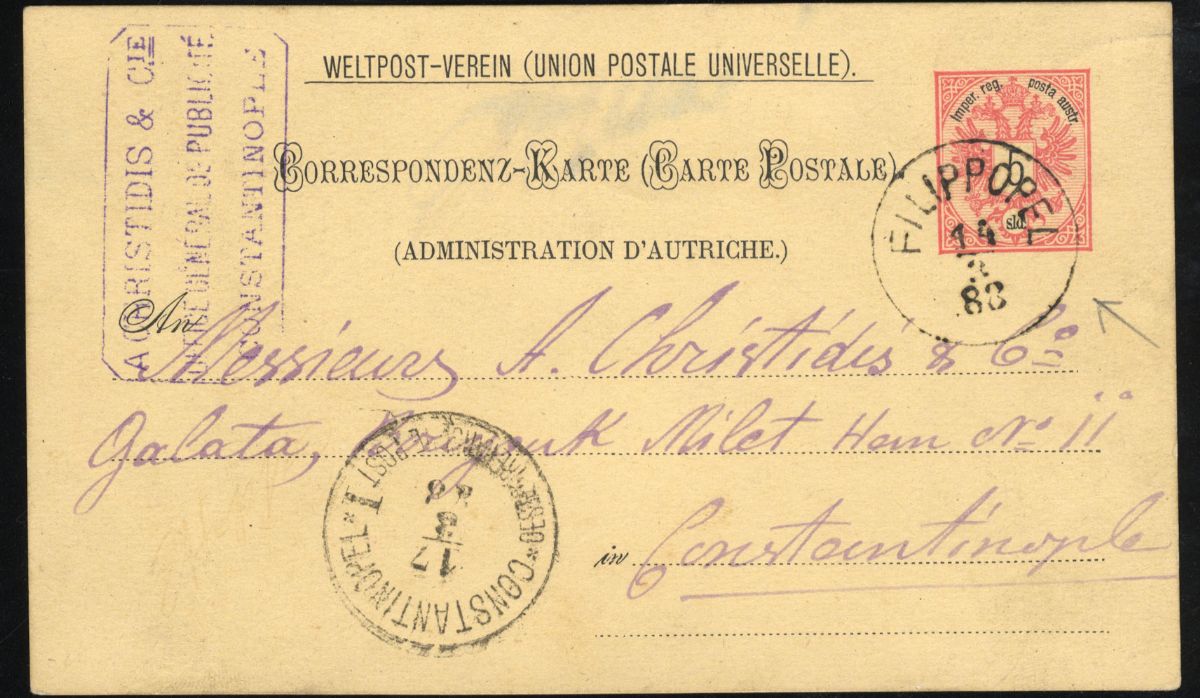 WELTPOST-VEREIN (UNION POSTALE UNIVERSELLE).
A CHRISTIDIS & CIE
GÉNÉRAL DE PUBLICITÉ
CONSTANTINOPLE
Imper. reg. posta austr.
5
sld.
CORRESPONDENZ-KARTE (CARTE POSTALE)
FILIPPOPEL
14
3
88
(ADMINISTRATION D'AUTRICHE.)
An
Messieurs A. Christidis & Co
Galata, Milet Han No 11
CONSTANTINOPEL I
17
3
88
in Constantinople